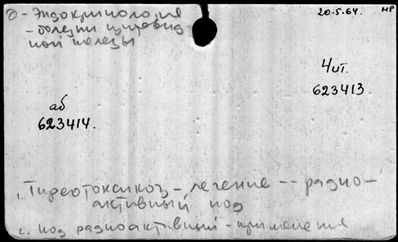 Э - Эндокринология
20-5-64. МР
- болезни щитовид-
ной железы
Чит.
623413.
аб
623414.
1. Тиреотоксикоз - лечение -- радио-
активный иод
2. Иод радиоактивный - применение